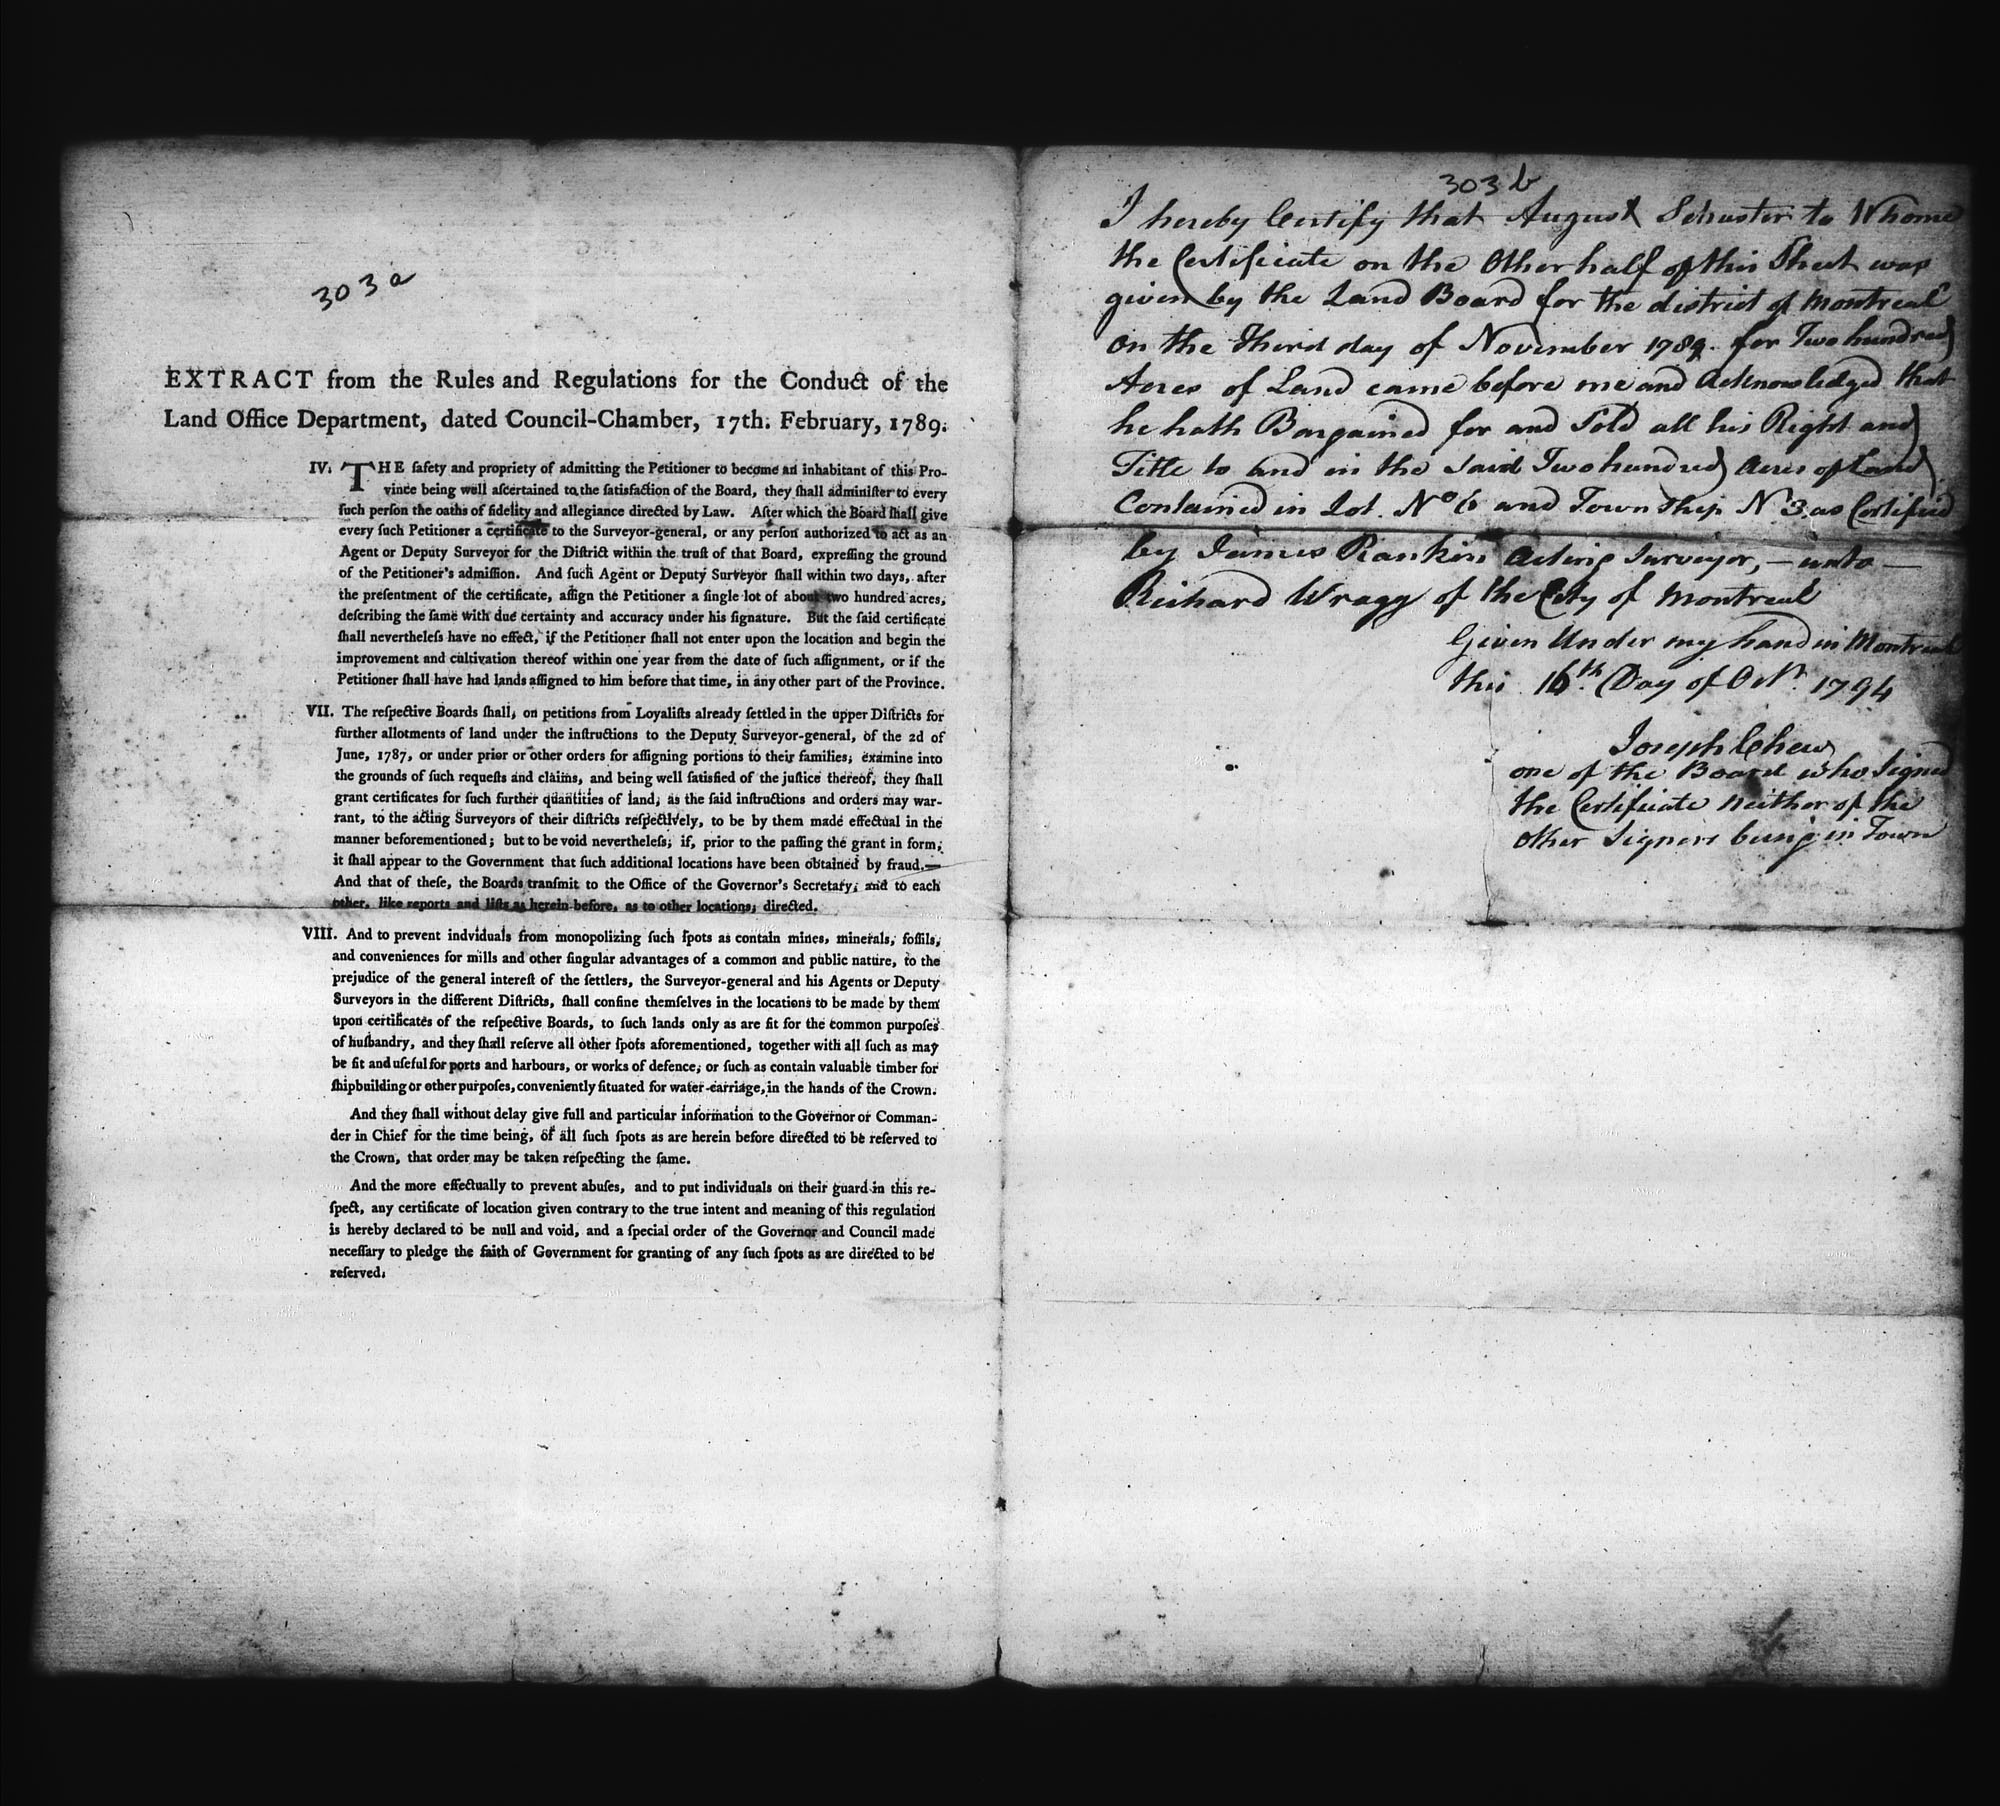 303 a
EXTRACT from the Rules and Regulations for the Conduct of the
Land Office Department, dated Council-Chamber, 17th. February, 1789.
IV. THE ſafety and propriety of admitting the Petitioner to become an inhabitant of this Pro-
vince being well aſcertained to the ſatisfaction of the Board, they ſhall adminiſter to every
ſuch perſon the oaths of fidelity and allegiance directed by Law. After which the Board ſhall give
every ſuch Petitioner a certificate to the Surveyor-general, or any perſon authorized to act as an
Agent or Deputy Surveyor for the Diſtrict within the truſt of that Board, expreſſing the ground
of the Petitioner's admiſſion. And ſuch Agent or Deputy Surveyor ſhall within two days, after
the preſentment of the certificate, aſſign the Petitioner a ſingle lot of about two hundred acres,
deſcribing the ſame with due certainty and accuracy under his ſignature. But the ſaid certificate
ſhall nevertheleſs have no effect, if the Petitioner ſhall not enter upon the location and begin the
improvement and cultivation thereof within one year from the date of ſuch aſſignment, or if the
Petitioner ſhall have had lands aſſigned to him before that time, in any other part of the Province.
VII. The reſpective Boards ſhall, on petitions from Loyaliſts already ſettled in the upper Diſtricts for
further allotments of land under the inſtructions to the Deputy Surveyor-general, of the 2d of
June, 1787, or under prior or other orders for aſſigning portions to their families; examine into
the grounds of ſuch requeſts and claims, and being well ſatisfied of the juſtice thereof, they ſhall
grant certificates for ſuch further quantities of land, as the ſaid inſtructions and orders may war-
rant, to the acting Surveyors of their diſtricts reſpectively, to be by them made effectual in the
manner beforementioned; but to be void nevertheleſs; if, prior to the paſſing the grant in form,
it ſhall appear to the Government that ſuch additional locations have been obtained by fraud.—
And that of theſe, the Boards tranſmit to the Office of the Governor's Secretary, and to each
other, like reports and liſts as herein before, as to other locations, directed.
VIII. And to prevent indviduals from monopolizing ſuch ſpots as contain mines, minerals, foſſils,
and conveniences for mills and other ſingular advantages of a common and public nature, to the
prejudice of the general intereſt of the ſettlers, the Surveyor-general and his Agents or Deputy
Surveyors in the different Diſtricts, ſhall confine themſelves in the locations to be made by them
upon certificates of the reſpective Boards, to ſuch lands only as are fit for the common purpoſes
of huſbandry, and they ſhall reſerve all other ſpots aforementioned, together with all ſuch as may
be fit and uſeful for ports and harbours, or works of defence, or ſuch as contain valuable timber for
ſhipbuilding or other purpoſes, conveniently ſituated for water-carriage, in the hands of the Crown.
And they ſhall without delay give full and particular information to the Governor or Comman-
der in Chief for the time being, of all ſuch ſpots as are herein before directed to be reſerved to
the Crown, that order may be taken reſpecting the ſame.
And the more effectually to prevent abuſes, and to put individuals on their guard in this re-
ſpect, any certificate of location given contrary to the true intent and meaning of this regulation
is hereby declared to be null and void, and a ſpecial order of the Governor and Council made
neceſſary to pledge the faith of Government for granting of any ſuch ſpots as are directed to be
reſerved.
303 b
I hereby Certify that August Schuster to Whome
the Certificate on the Other half of this Sheet was
given by the Land Board for the district of Montreal
on the Third day of November 1789. for Two hundred
Acres of Land came before me and Acknowledged that
he hath Bargained for and Sold all his Right and
Title to and in the Said Two hundred Acres of Land
Contained in Lot. No 6 and Town Ship N 3. as Certified
by James Rankin Acting Surveyor, — unto —
Richard Wragg of the City of Montreal
Given Under my hand in Montreal
this 16th. Day of Octr. 1794
Joseph Chew
one of the Board who Signed
the Certificate neither of the
other Signers being in Town